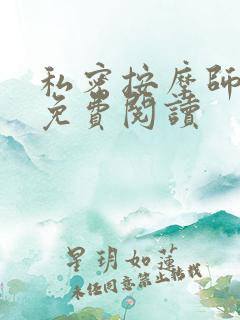 私密按摩師
免費閱讀
星玥如蓮
未经同意禁止转载